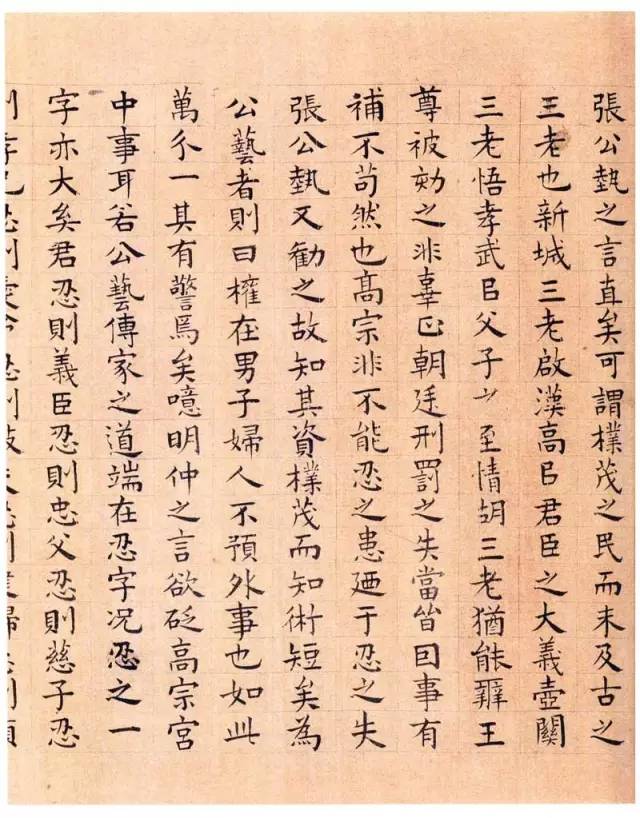 張公埶之言直矣可謂樸茂之民而未及古之
三老也新城三老啟漢高㠯君臣之大義壺關
三老悟孝武㠯父子之至情胡三老猶能辤王
尊被劾之非辜正朝廷刑罰之失當皆因事有
補不苟然也高宗非不能忍之患迺于忍之失
張公埶又勸之故知其資樸茂而知術短矣為
公藝者則曰權在男子婦人不預外事也如此
萬分一其有警焉矣噫明仲之言欲砭高宗宮
中事耳若公藝傳家之道端在忍字况忍之一
字亦大矣君忍則義臣忍則忠父忍則慈子忍